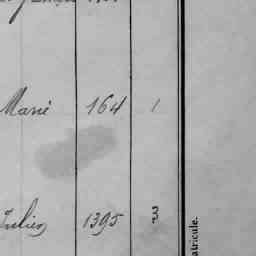 Marié 164 1
Julien 1395 3
atricule.